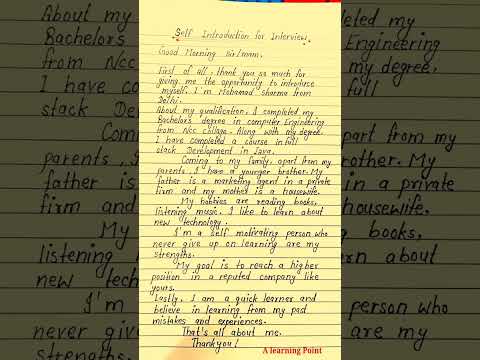 Self Introduction for Interview.
Good Morning Sir/mam.
First of all, thank you so much for
giving me the opportunity to introduce
myself. I'm Mohamad Sharma from
Delhi.
About my qualification, I completed my
Bachelors degree in computer Engineering
from Ncc college. Along with my degree.
I have completed a course in full
stack Development in Java.
Coming to my family, apart from my
parents, I have a younger brother. My
father is a marketing agent in a private
firm and my mother is a housewife.
My hobbies are reading books,
listening music. I like to learn about
new technology.
I'm a self motivating person who
never give up on learning are my
strengths.
My goal is to reach a higher
position in a reputed company like
yours.
Lastly, I am a quick learner and
believe in learning from my past
mistakes and experiences.
That's all about me.
Thankyou!
A learning Point